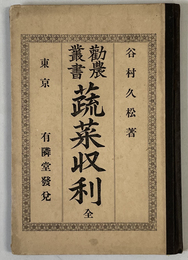 谷村久松著
勸農叢書
蔬菜収利
全
東京 有隣堂發兌